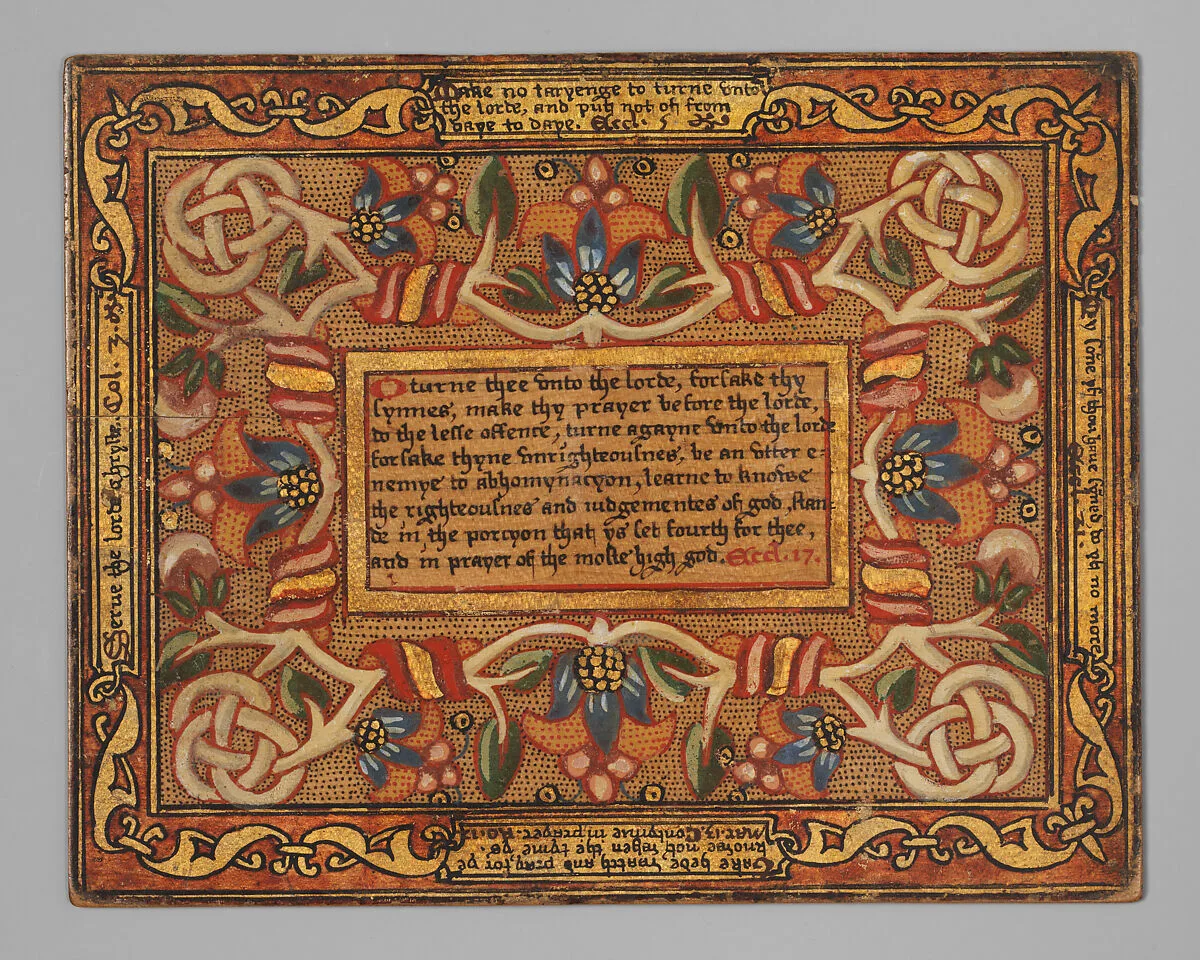 Make no taryenge to turne vnto
the lorde, and put not of from
daye to daye. Eccl. 5
O turne thee vnto the lorde, forsake thy
synnes, make thy prayer before the lorde,
do the lesse offence, turne agayne vnto the lorde
forsake thyne vnrighteousnes, be an vtter e-
nemye to abhomynacyon, learne to knowe
the righteousnes and iudgementes of god, stan-
de in the porcyon that ys set fourth for thee,
and in prayer of the moste high god. Eccl. 17.
My sone yf thou haue synned do yt no more
Eccl. 21.
Take hede, watch and pray, for ye
knowe not when the tyme ys.
Mar. 13. Contynue in prayer. Ro. 12
Serue the lorde chryste. Col. 3.